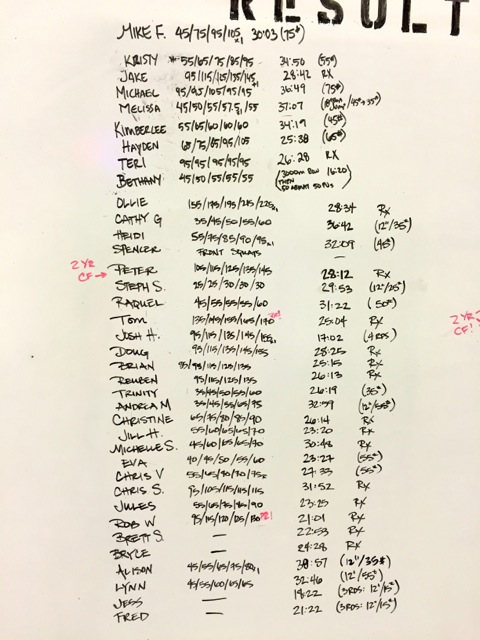 RESULT
MIKE F. 45/75/95/105x1 30:03 (75#)
KRISTY 55/65/75/85/95 34:50 (55#)
JAKE 95/115/125/135/145 28:42 RX
MICHAEL 95/95/105/95/95 36:49 (75#)
MELISSA 45/50/55/57.5x1/55 37:07
KIMBERLEE 55/65/60/60/60 34:19 (45#)
HAYDEN 65/75/85/95/105 25:38 (65#)
TERI 95/95/95/95/95 26:28 RX
BETHANY 45/50/55/55/55 (3000m ROW 16:20)
THEN
50 ABOUT 50 PUs
OLLIE 155/175/195/215/225x1 28:34 RX
CATHY G 35/45/50/55/60 36:42 (12"/35#)
HEIDI 55/75/85/90/95x1 32:09 (45#)
SPENCER FRONT SQUATS —
2 YR
CF → PETER 105/115/125/135/145 28:12 RX
STEPH S. 25/25/30/30/30 29:53 (12"/25#)
RAQUEL 45/55/55/55/60 31:22 (50#)
TOM 135/145/155/165/170 25:04 RX
2 YR
CF!
JOSH H. 95/115/135/145/155x1 17:02 (4 RDS)
DOUG 95/115/135/145/155 28:25 RX
BRIAN 75/95/115/125/135 25:15 RX
REUBEN 95/115/125/135 26:13 RX
TRINITY 35/45/50/55/60 26:19 (35#)
ANDREA M 35/45/55/65/75 32:59 (12"/55#)
CHRISTINE 65/75/80/85/90 26:14 RX
JILL H. 55/60/65/65/70 23:20 RX
MICHELLE S. 45/60/65/65/70 30:48 RX
EVA 40/45/50/55/60 23:27 (55#)
CHRIS V 55/65/70/70/75 27:33 (55#)
CHRIS S. 95/105/115/115/115 31:52 RX
JULES 55/65/75/85/90 23:25 RX
ROB W 95/115/120/125/130 PR! 21:01 RX
BRETT S. — 22:53 RX
BRYCE — 24:28 RX
ALISON 45/55/65/75/80x1 30:57 (12"/35#)
LYNN 45/55/60/65/65 32:46 (12"/55#)
JESS — 18:22 (3RDS: 12"/15#)
FRED — 21:22 (3RDS: 12"/15#)